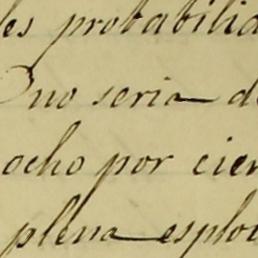 les probabilid
no seria de
ocho por cien
plena esplo